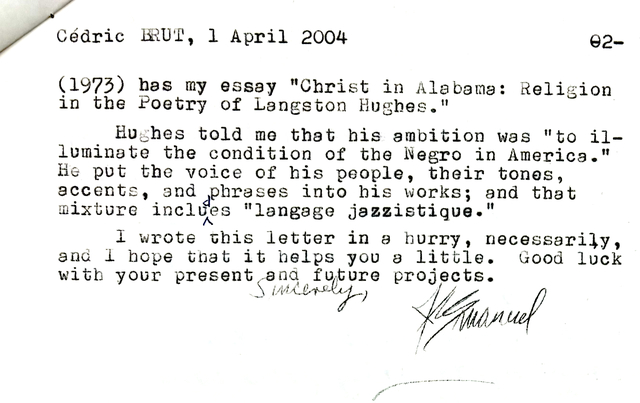 Cédric BRUT, 1 April 2004 02-
(1973) has my essay "Christ in Alabama: Religion
in the Poetry of Langston Hughes."
Hughes told me that his ambition was "to il-
luminate the condition of the Negro in America."
He put the voice of his people, their tones,
accents, and phrases into his works; and that
mixture includes "langage jazzistique."
I wrote this letter in a hurry, necessarily,
and I hope that it helps you a little. Good luck
with your present and future projects.
Sincerely,
Emanuel